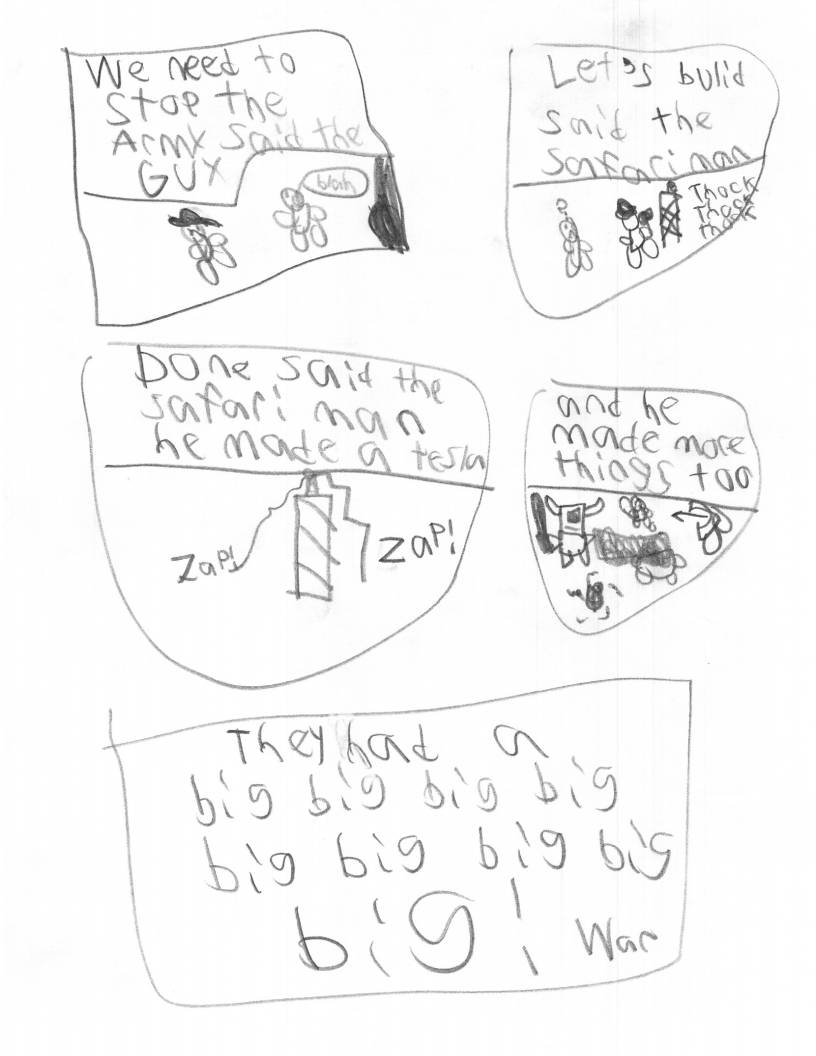 We need to
stop the
Army said the
GUY
blah
Let's bulid
said the
safari man
Thock
Thock
thock
Done said the
safari man
he made a tesla
Zap!
Zap!
and he
made more
things too
They had a
big big big big
big big big big
big! War